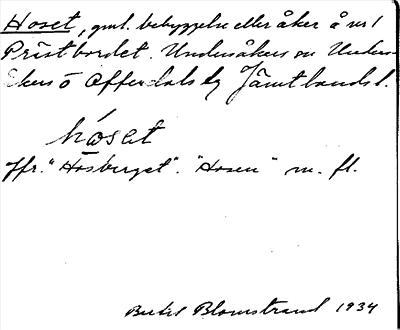 Hoset, gml. bebyggelse eller åker å nr 1
Prästbordet. Undersåkers sn Under-
såkers o Offerdals tg Jämtlands l.
hóset
Jfr. "Hosberget". "Hosen" m. fl.
Bertil Blomstrand 1934